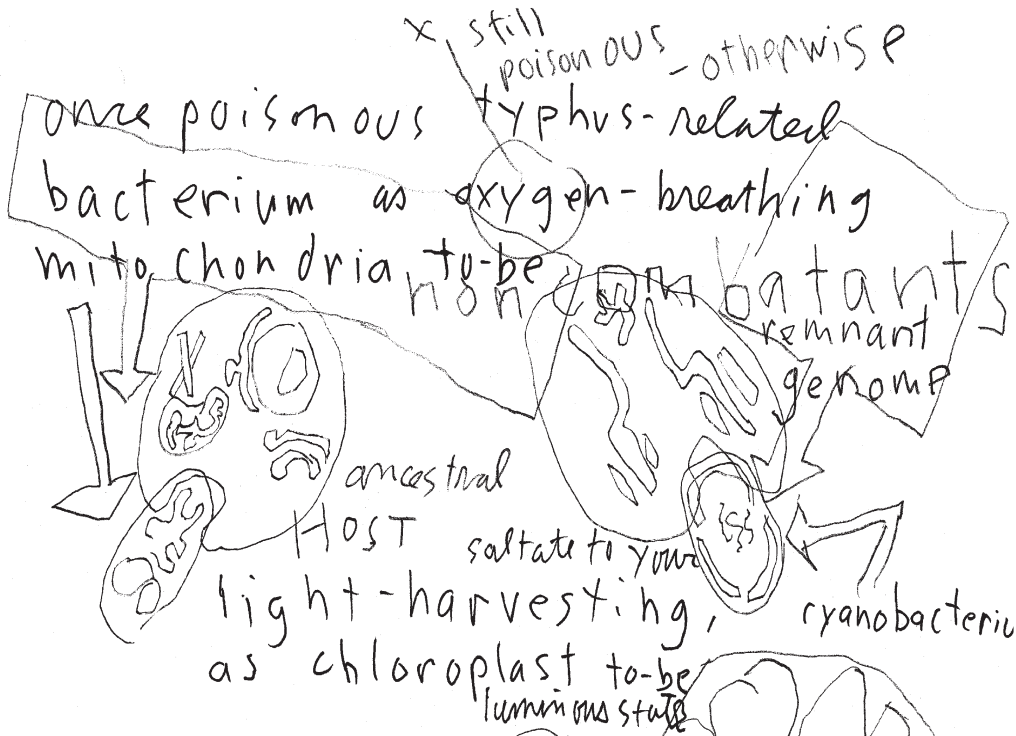 x still
poisonous - otherwise
once poisonous typhus-related
bacterium as oxygen-breathing
mitochondria, to-be
non combatants
remnant
genome
ancestral
HOST
saltate to your
light-harvesting,
cyanobacteriu
as chloroplast to-be
luminous state